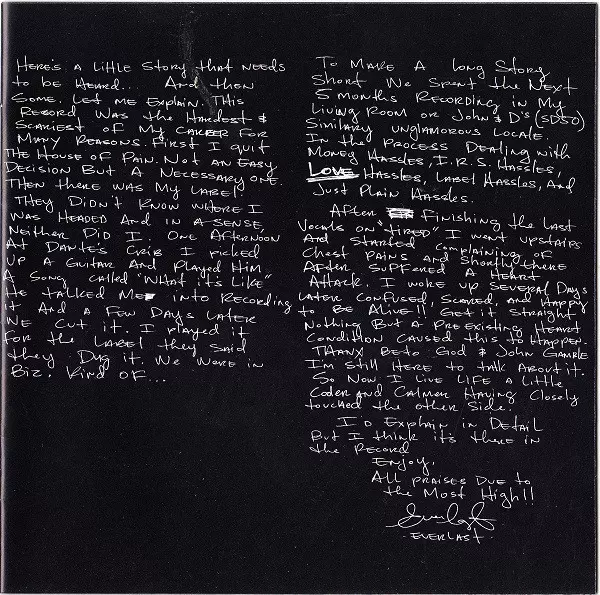 Here's a little story that needs
to be heard... And then
some. Let me explain. This
record was the hardest &
scariest of my career for
many reasons. First I quit
the House of Pain. Not an easy
decision but a necessary one.
Then there was my label
they didn't know where I
was headed and in a sense,
neither did I. One afternoon
at Dante's crib I picked
up a guitar and played him
a song called "What it's like"
He talked me into recording
it and a few days later
we cut it. I played it
for the label they said
they dug it. We were in
biz. Kind of...
To make a long story
short we spent the next
5 months recording in my
living room or John & D's (SD50)
similary unglamorous locale.
In the process dealing with
money hassles, I.R.S. hassles,
LOVE hassles, label hassles, and
just plain hassles.
After finishing the last
vocals on "Tired" I went upstairs
and started complaining of
chest pains and shortly there
after suffered a heart
attack. I woke up several days
later confused, scared, and happy
to be alive!! Get it straight
nothing but a preexisting heart
condition caused this to happen.
Thanx be to God & John Gamble
I'm still here to talk about it.
So now I live life a little
coder and calmer having closely
touched the other side.
I'd explain in detail
but I think it's there in
the record
Enjoy.
All praises due to
the Most High!!
Everlast
-EVERLAST-